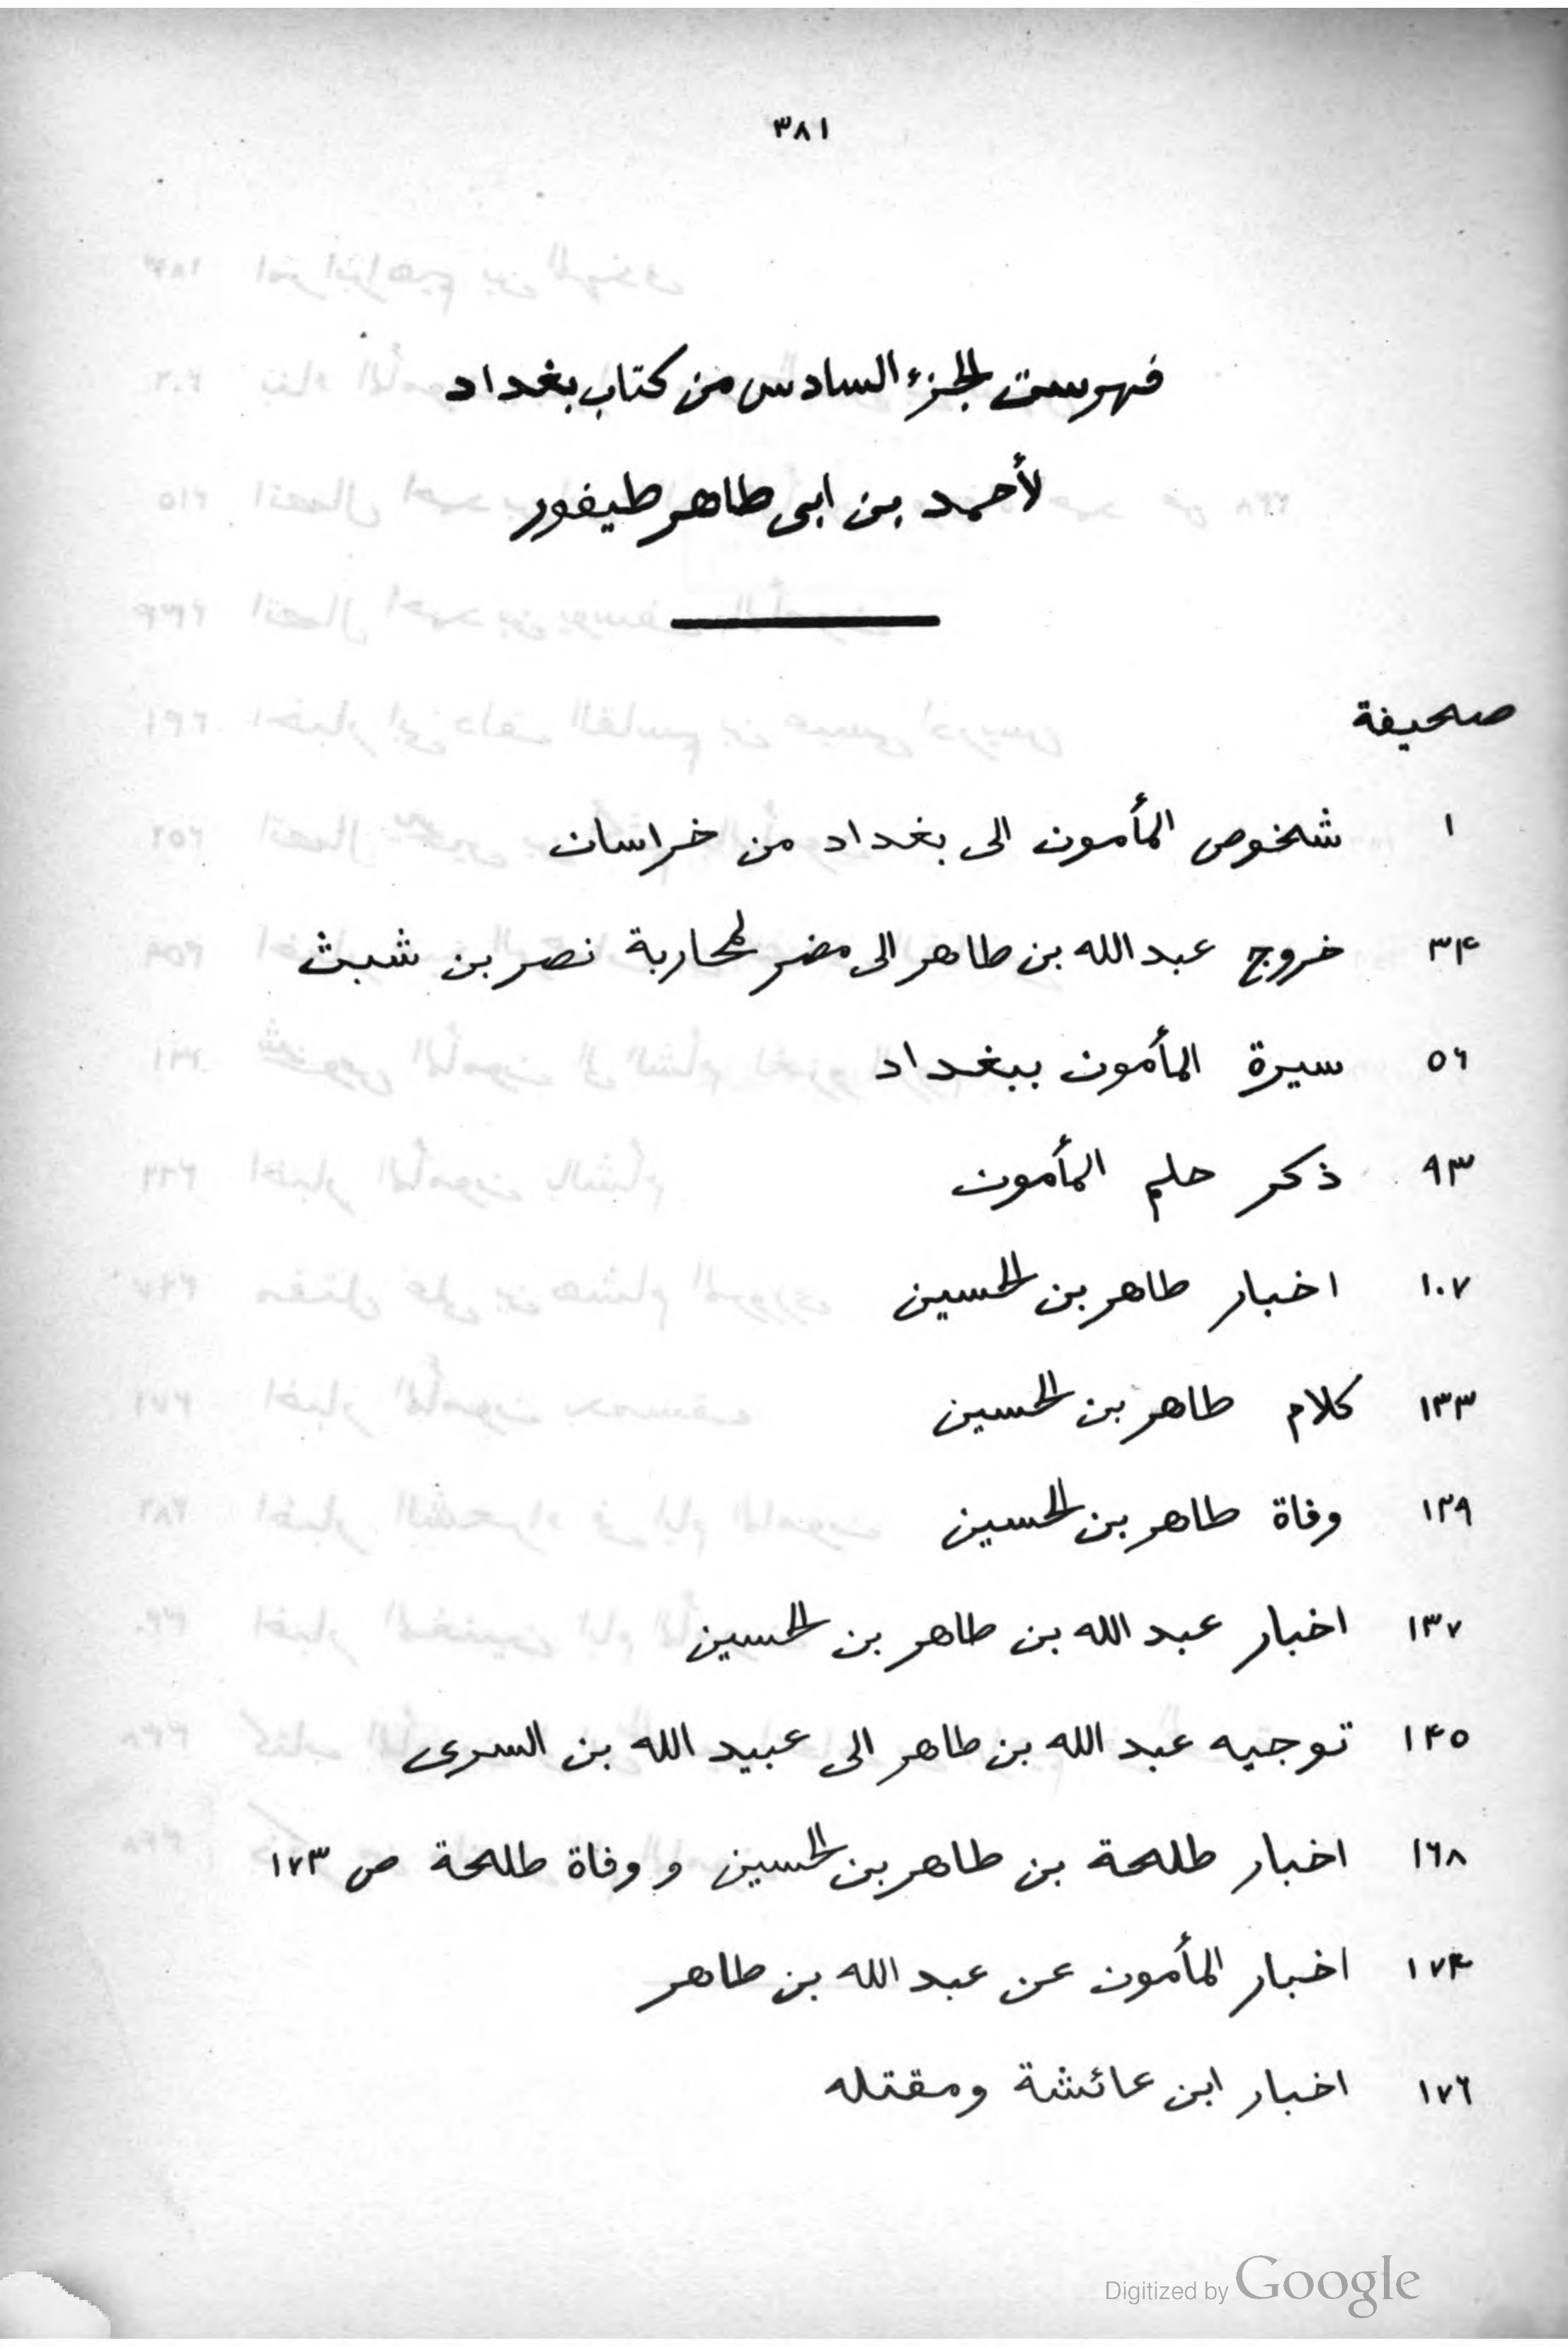 ٣٨١
فهرست الجزء السادس من كتاب بغداد
لأحمد بن ابى طاهر طيفور
صحيفة
١ شخوص المأمون الى بغداد من خراسان
٣۴ خروج عبد الله بن طاهر الى مضر لمحاربة نصر بن شبث
٥٦ سيرة المأمون ببغداد
٩٣ ذكر حلم المأمون
١٠٧ اخبار طاهر بن الحسين
١٢٣ كلام طاهر بن الحسين
١٢٩ وفاة طاهر بن الحسين
١٣٧ اخبار عبد الله بن طاهر بن الحسين
١۴٥ توجيه عبد الله بن طاهر الى عبيد الله بن السرى
١٦٨ اخبار طلحة بن طاهر بن الحسين و وفاة طلحة ص ١٧٣
١٧۴ اخبار المأمون عن عبد الله بن طاهر
١٧٦ اخبار ابن عائشة ومقتله
Digitized by Google